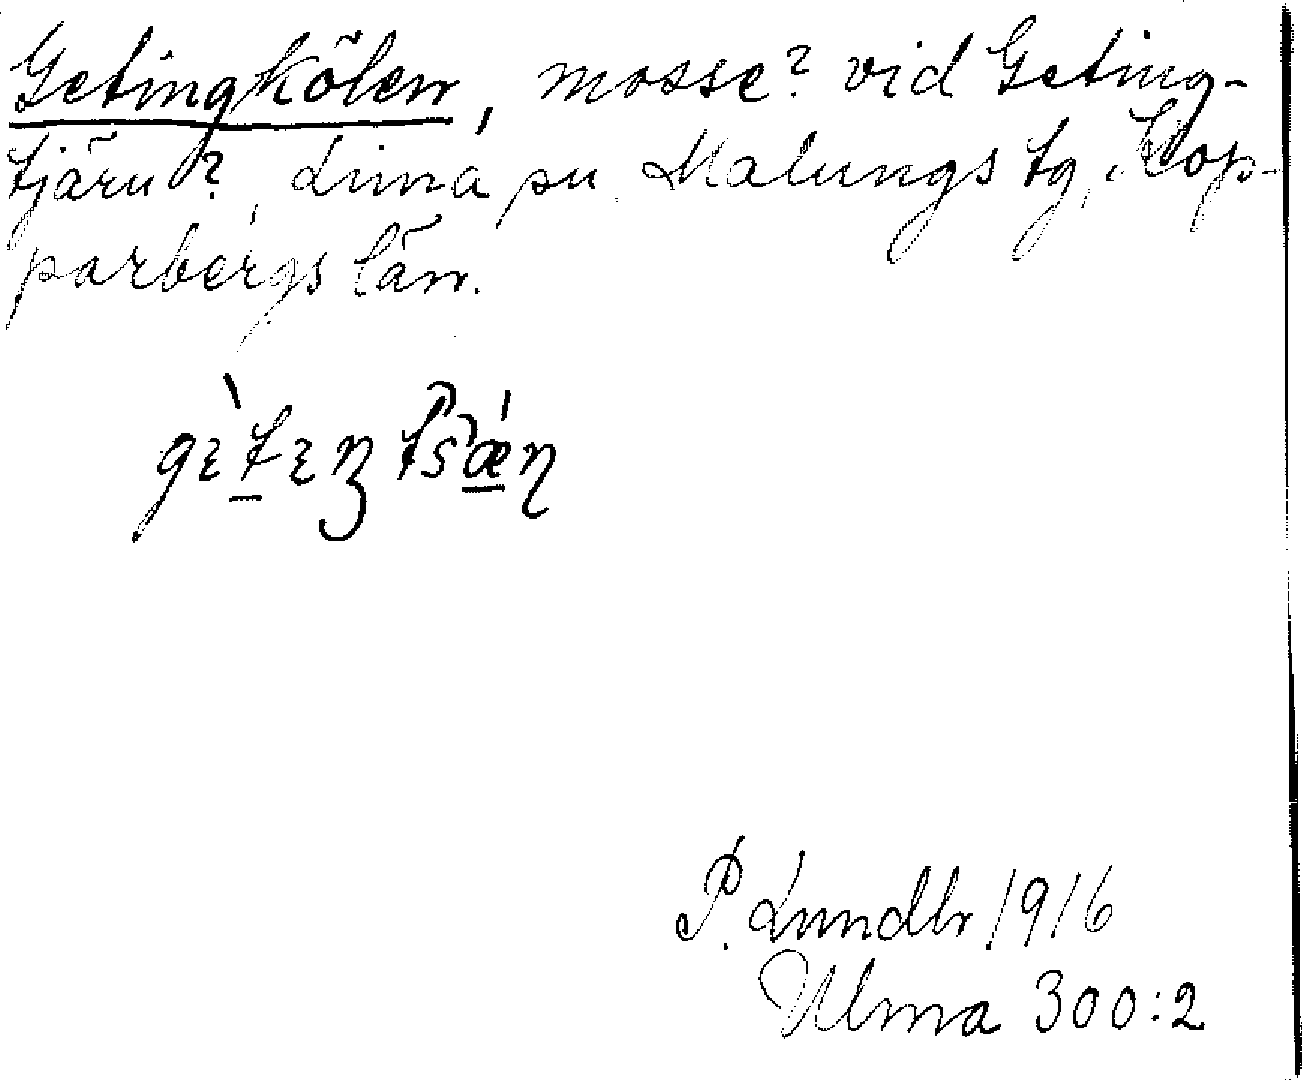 Getingkölen, mosse? vid Geting-
tjärn? Lima sn. Malungs tg, Kop-
parbergs län.
P. Lundbr 1916
Ulma 300:2